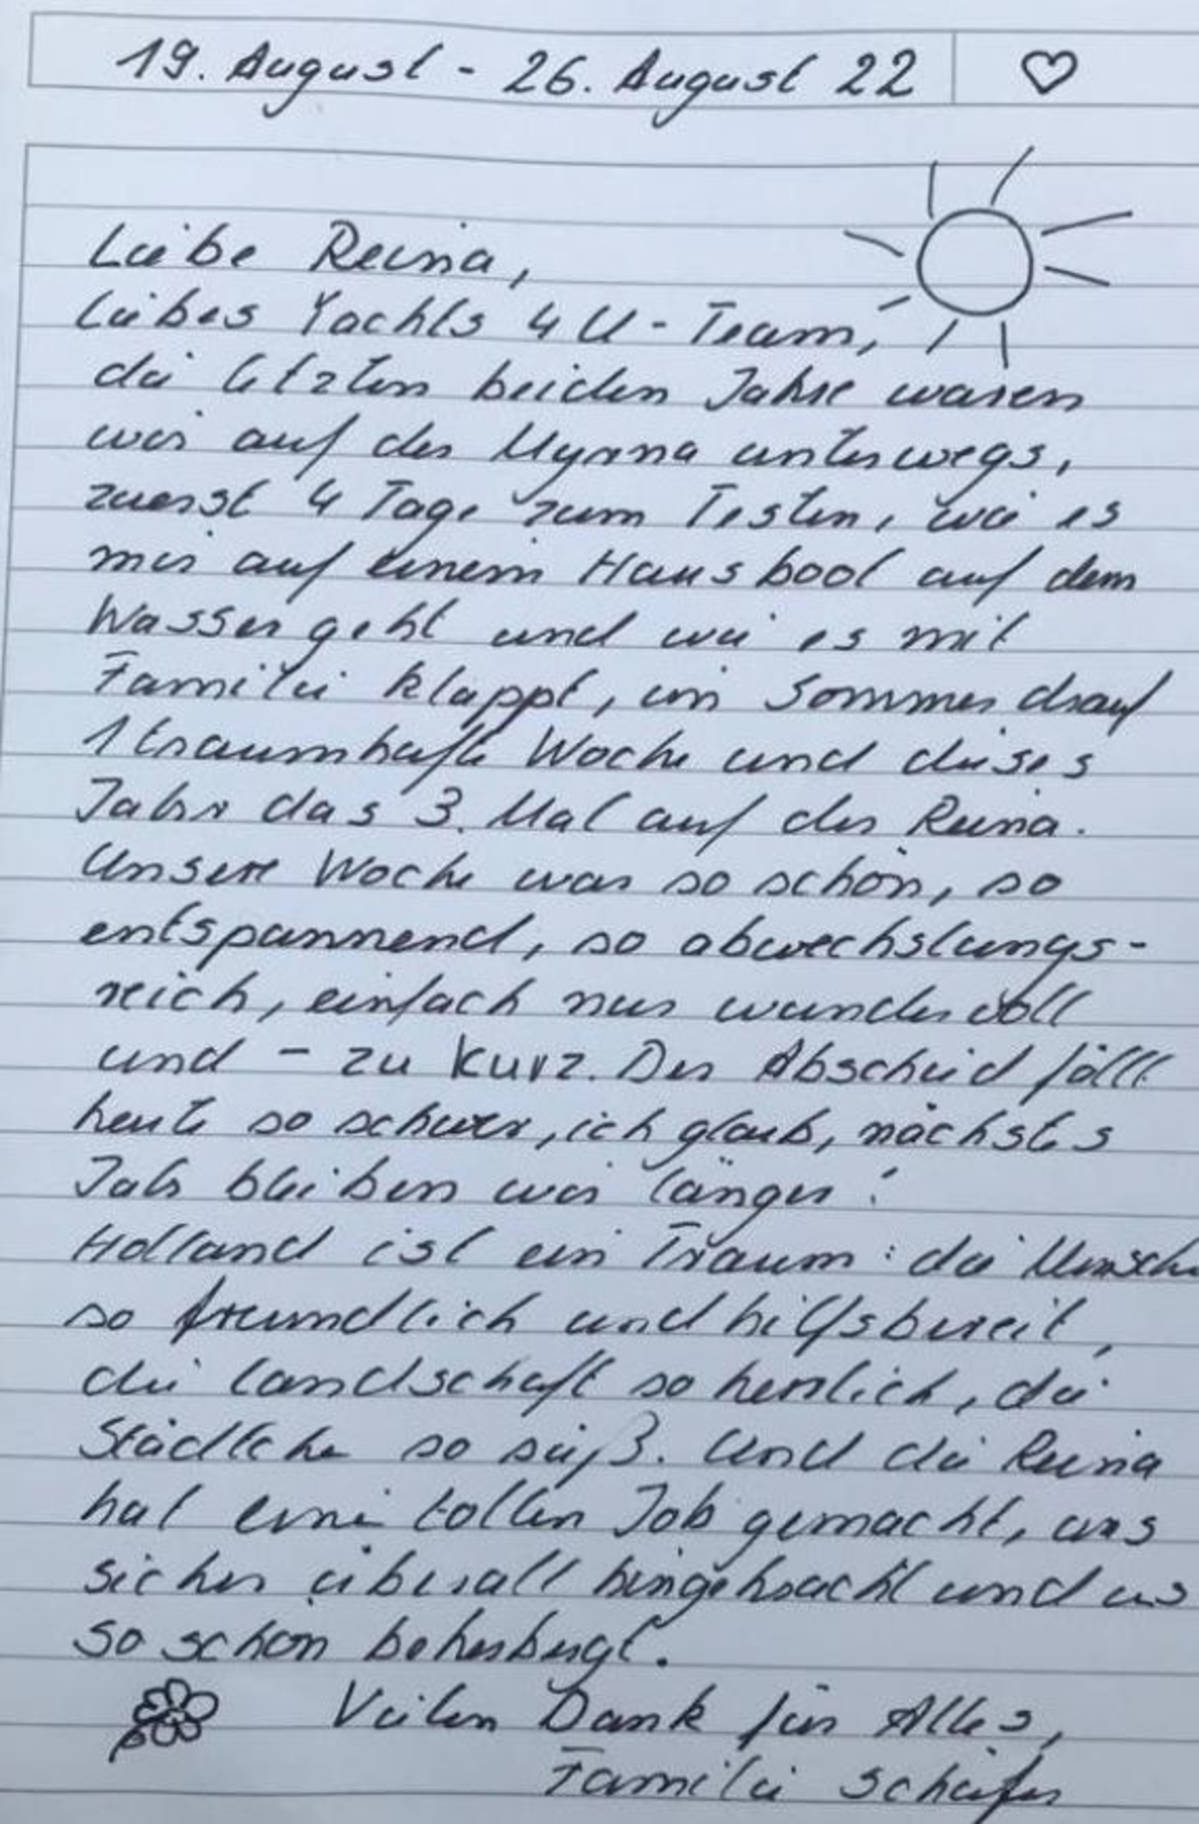 19. August - 26. August 22 ♡
Liebe Reina,
liebes Yachts 4 U - Team,
die letzten beiden Jahre waren
wir auf der Myrna unterwegs,
zuerst 4 Tage zum Testen, wie es
mir auf einem Hausboot auf dem
Wasser geht und wie es mit
Familie klappt, im Sommer drauf
1 traumhafte Woche und dieses
Jahr das 3. Mal auf der Reina.
Unsere Woche war so schön, so
entspannend, so abwechslungs-
reich, einfach nur wundervoll
und - zu kurz. Der Abschied fällt
heute so schwer, ich glaub, nächstes
Jahr bleiben wir länger!
Holland ist ein Traum: die Mensche
so freundlich und hilfsbereit,
die Landschaft so herrlich, die
Städtche so süß. Und die Reina
hat eine tollen Job gemacht, uns
sicher überall hingebracht und uns
so schön beherbergt.
Vielen Dank für Alles,
Familie Schäfer